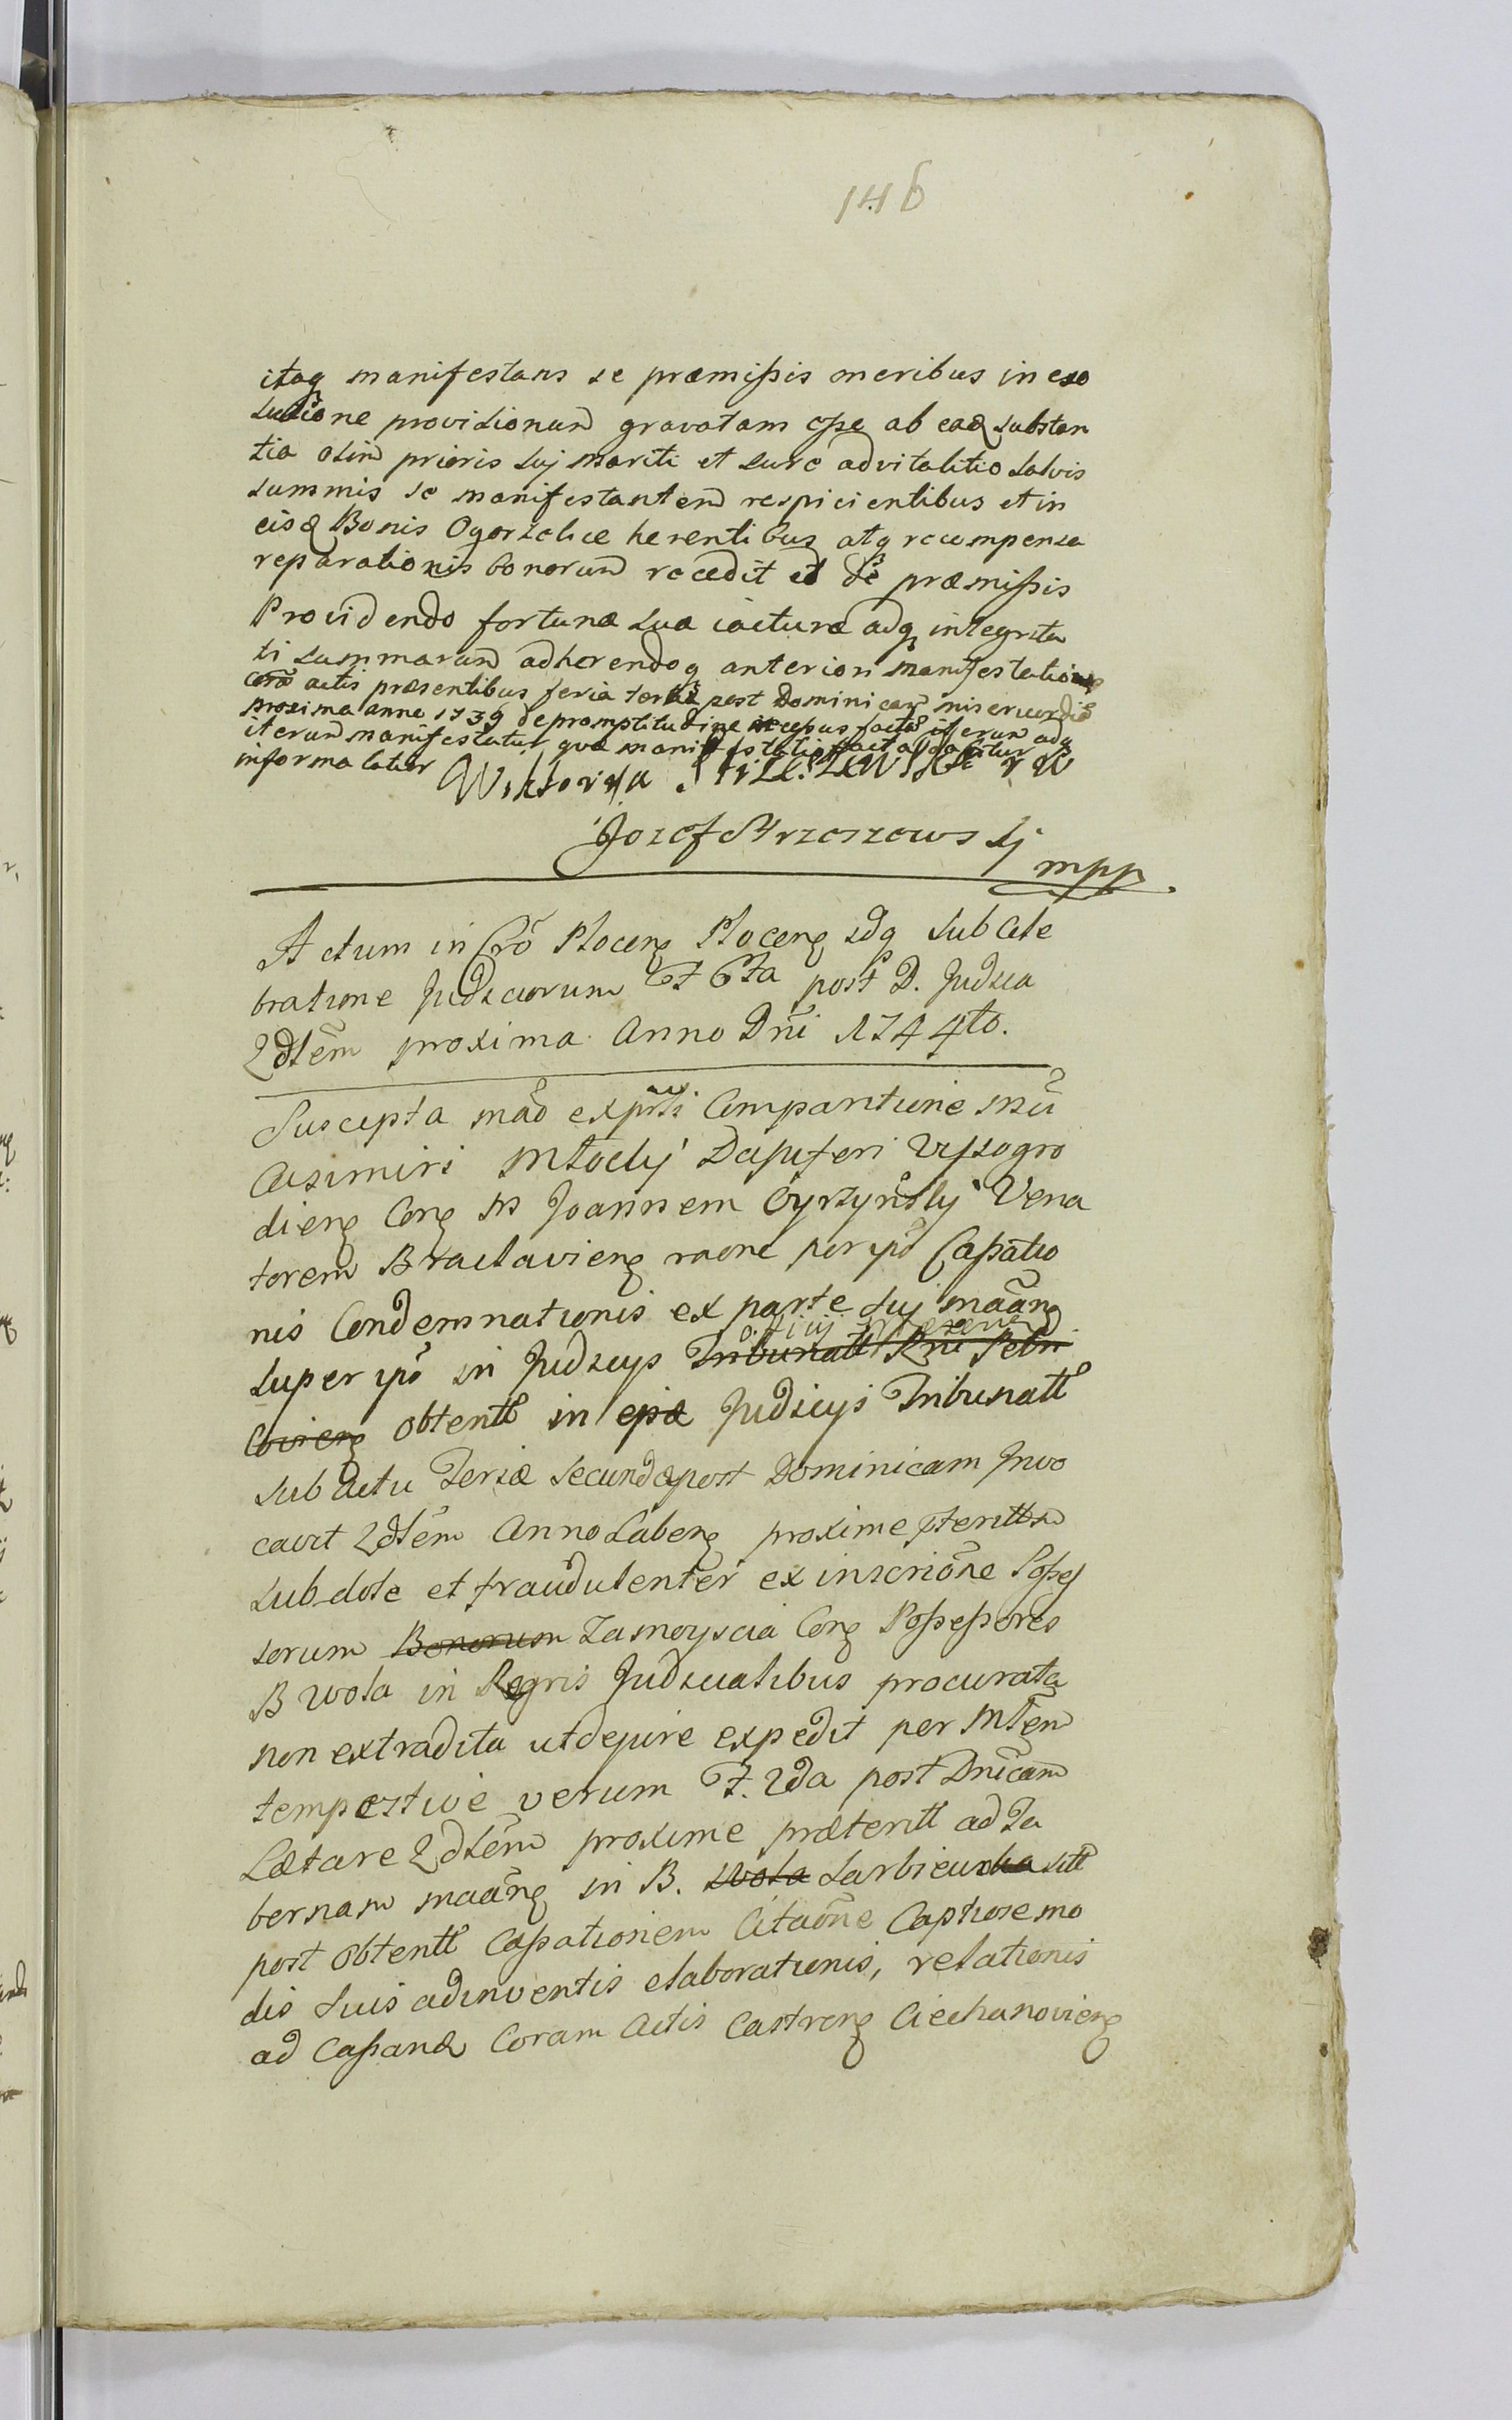 146
itaq manifestans se præmissis meribus in exo
lutione provisionum gravatam esse ab eadq substan
tia olim prioris suj mariti et sure advitalitio salvis
summis se manifestantem respicientibus et in
eisd Bonis Ogorzelice herentibus atq recompensa
reparationis bonorum recedit et de præmissis
Providendo fortunæ suæ iacturæ adq integrita
ti summarum adherendoq anteriori manifestatione
corã actis præsentibus feria tertia post Dominicam misericordiæ
proxima anno 1739 de promptitudine factæ iterum adq
iterum manifestatur quæ manifestatio
informa latior Wiktorya Strzeszewska
Jozef Strzeszewskj
mpp
Actum in Cro Plocen Plocen sdq sub Cele
bratione Judiciorum F 6ta post D. Judica
Qdlem proxima Anno Dni 1744to.
Suscepta mad exprti Compartione Mci
Casimiri Młockj Dapiferi Vyszogro
dien Con M Joannem Cyrzynskj Vena
torem Braclavien raone per ipm Cassatio
nis Condemnationis ex parte suj maañ
super ipo in Judicijs Tribunall Rni Petri
Covien obtentt in Judicijs Tribunall
sub Actu Feriæ secundæ post Dominicam Invo
cavit Qdlem Anno Laben proxime pteritt
sub dole et fraudulenter ex inscrione Posses
sorum Bonorum Zamoyscia Con Possessores
B Wola in Regris Judicialibus procurata
non extradita ut de jure expedit per Mtem
tempestive verum F. 2da post Dnicam
Lætare Qdlem proxime præteritt ad Ta
bernam maañ in B. Wola Sarbiewo sitt
post obtentt Cassationem Citaone Captiose mo
dis suis adinventis elaborationis, relationis
ad Cassand Coram Actis Castren Ciechanovien